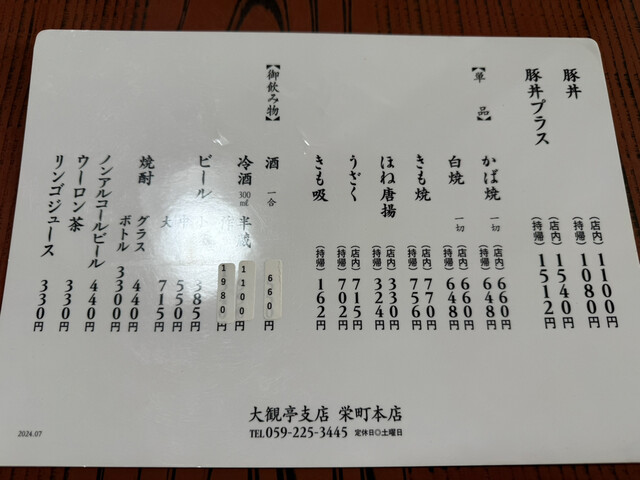 豚丼 (店内) 1100円
(持帰) 1080円
豚丼プラス (店内) 1540円
(持帰) 1512円
【単品】
かば焼 一切 (店内) 660円
(持帰) 648円
白焼 一切 (店内) 660円
(持帰) 648円
きも焼 (店内) 770円
(持帰) 756円
ほね唐揚 (店内) 330円
(持帰) 324円
うざく (店内) 715円
(持帰) 702円
きも吸 (持帰) 162円
【御飲み物】
酒 一合 660円
冷酒 300ml 半蔵 1100円
1980円
ビール 小 385円
中 550円
大 715円
焼酎 グラス 440円
ボトル 3300円
ノンアルコールビール 440円
ウーロン茶 330円
リンゴジュース 330円
大観亭支店 栄町本店
TEL 059-225-3445 定休日◎土曜日
2024.07